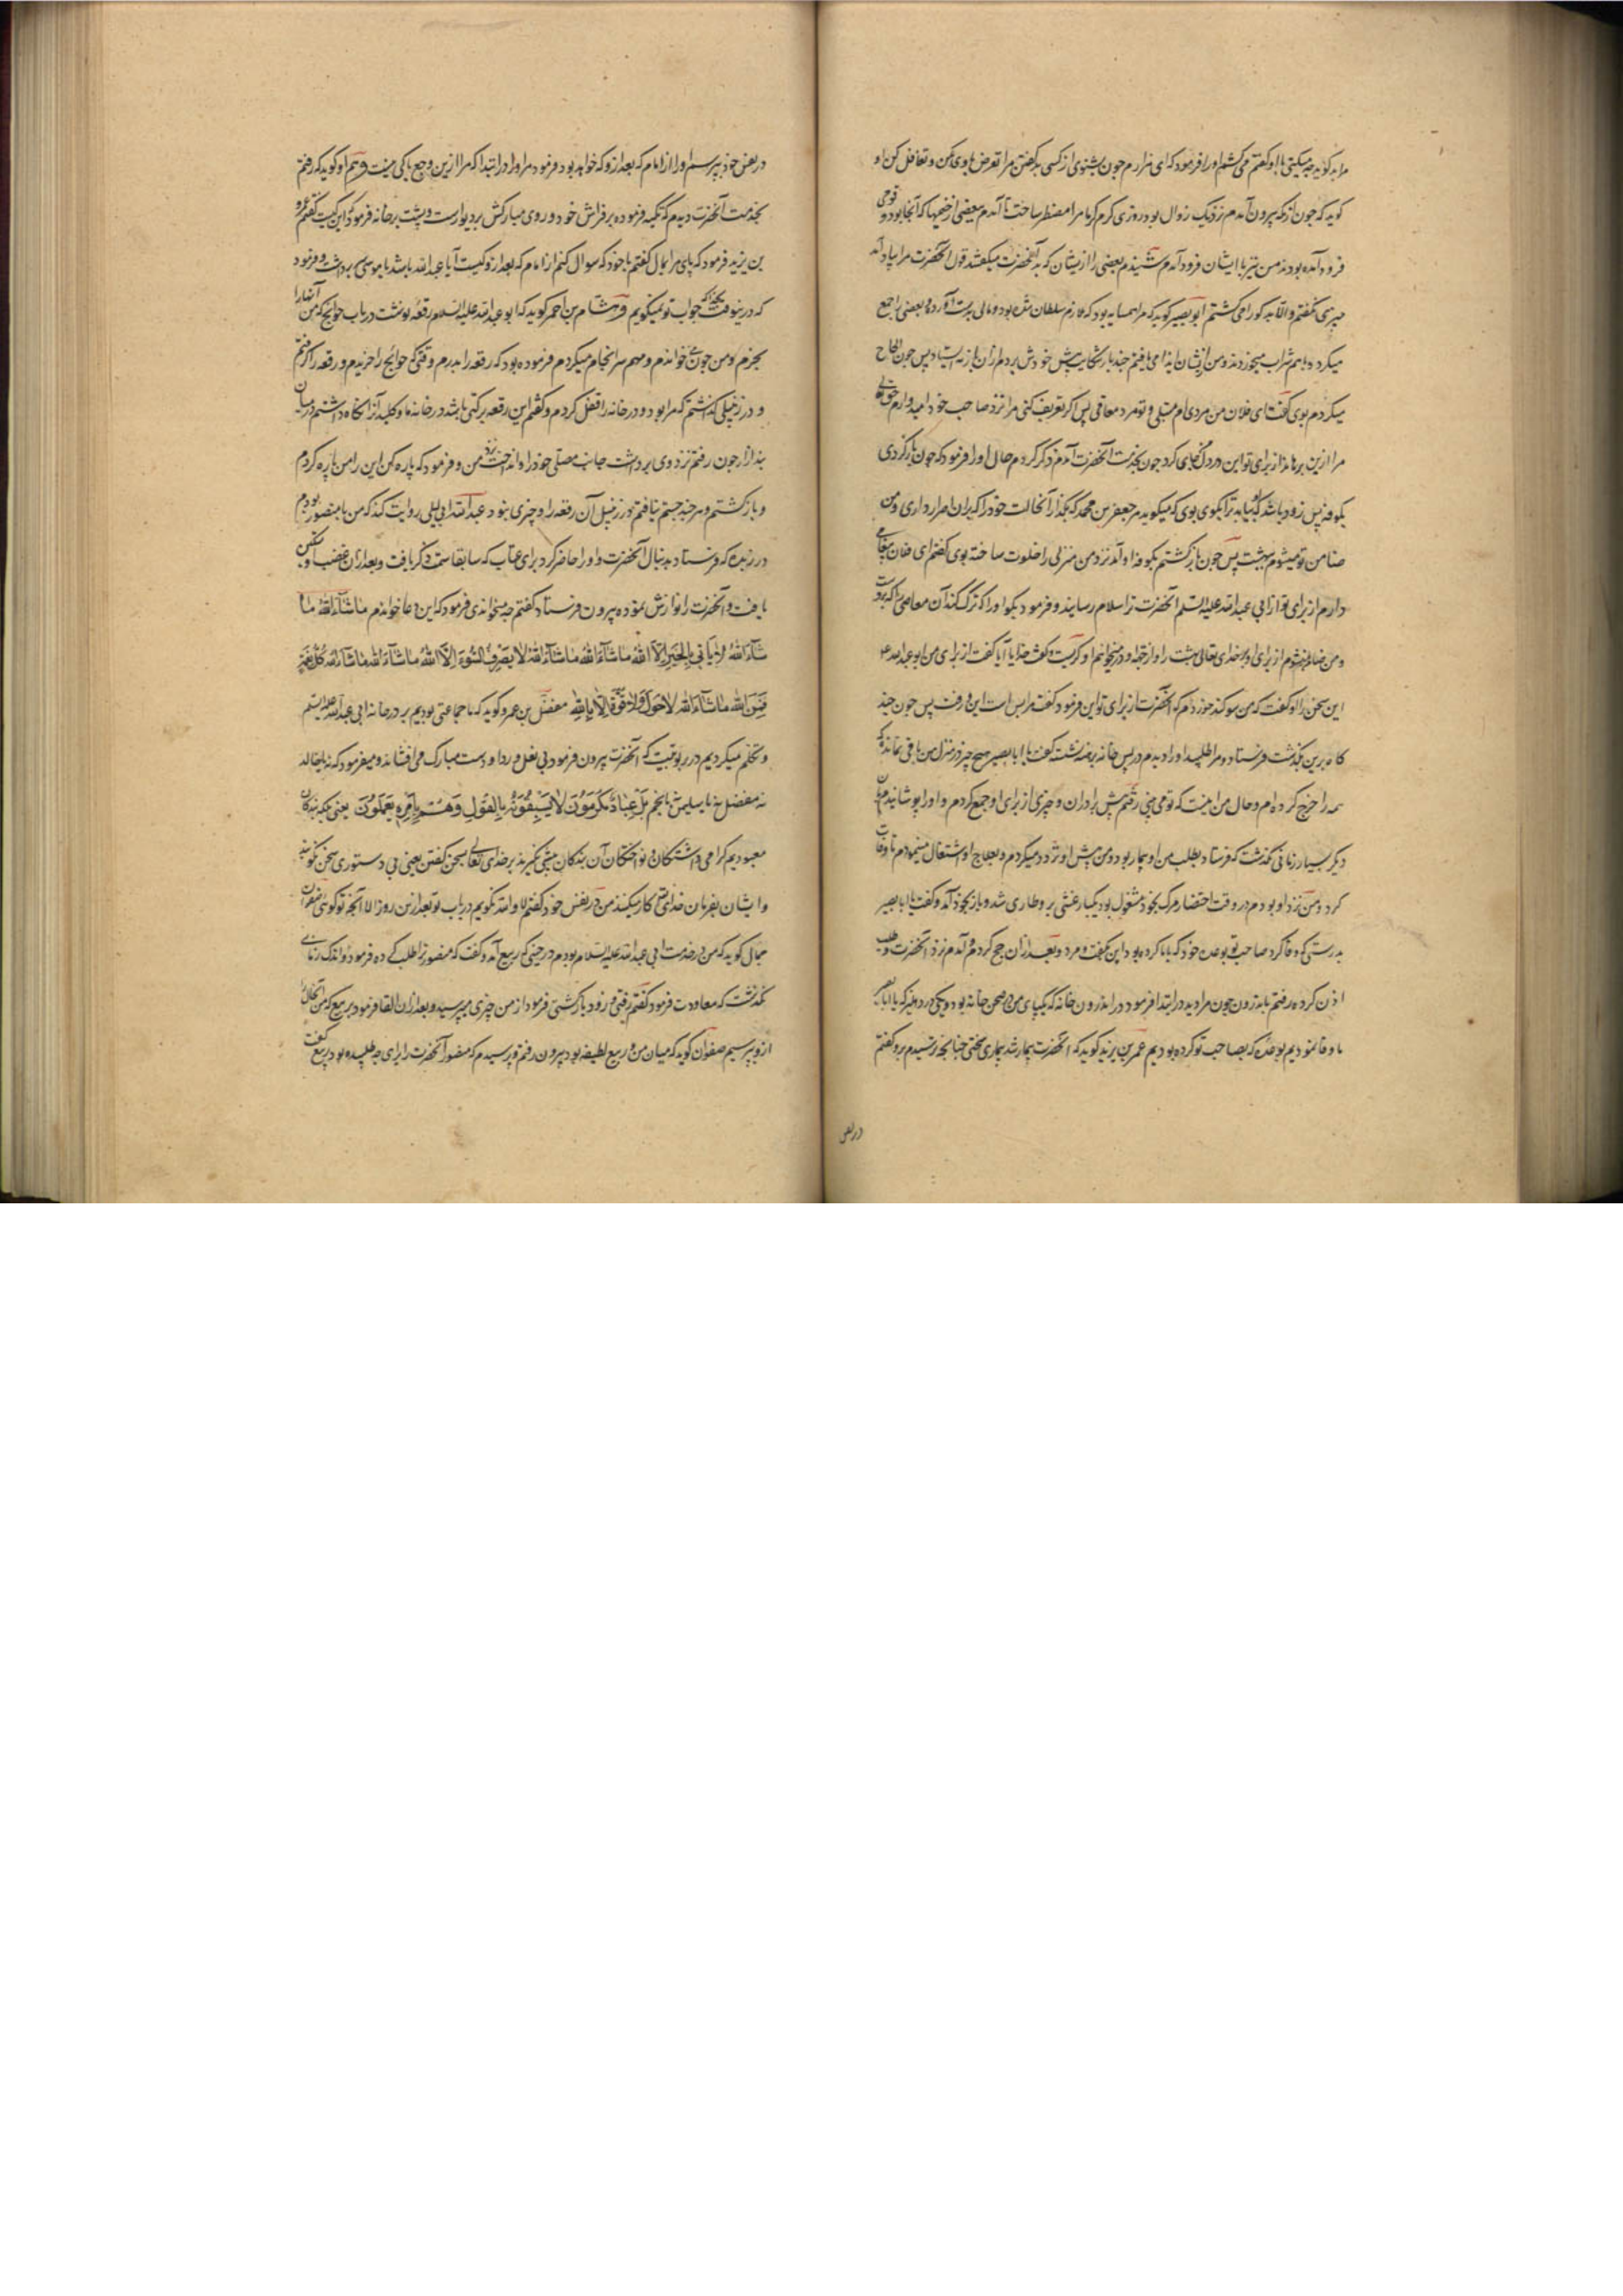 مرا بد گوید چه میکنی با او گفتم می کشم او را فرمود که ای مرارم چون بشنوی از کسی بد گفتن مرا تعرض باوی مکن و تغافل کن او
گوید که چون از مکه بیرون آمدم نزدیک زوال بود روزی گرم گرما مرا مضطر ساخت تا آمدم ببعضی از خیمها که آنجا بود و قومی
فرود آمده بودند من نیز با ایشان فرود آمدم شنیدم بعضی را از یشان که بد آنحضرت میگفتند قول آنحضرت مرا بیاد آمد
چیزی نگفتم و الا بد کو را می کشتم ابو بصیر گوید که مرا همسایه بود که ملازم سلطان شده بود و مالی بدست آورده و بعضی را جمع
میکرد و باهم شراب میخوردند و من از یشان ایذا می یافتم چند بار شکایت پیش خودش بردم از آن باز نه ایستاد پس چون الحاح
میکردم بوی گفت ای فلان من مردی ام مبتلی و تو مرد معافی پس اگر تعریف کنی مرا نزد صاحب خود امیدوارم حق تعالی
مرا ازین برهاند از برای تو این در دل من جای کرد چون بخدمت آنحضرت آمدم ذکر کردم حال او را فرمود که چون باز گردی
بکوفه پس زود باشد که بیاید ترا بگوی بوی که میگوید مر جعفر بن محمد که بگذار آنحالت خود را که بر آن اصرار داری و من
ضامن تو میشوم بهشت پس چون باز گشتم بکوفه او آمد نزد من منزلی را خلوت ساخته بوی گفتم ای فلان پیغامی
دارم از برای تو از ابی عبد الله علیه السلم آنحضرت ترا سلام رسانید و فرمود بگو او را که ترک کند آن معاصی را که بروست
و من ضامن میشوم از برای او بر خدای تعالی بهشت را و از و در میخواهم او گریست و گفت خدایا آیا گفت از برای من ابو عبد الله ع
این سخن را او گفت که من سوکند خوردم که آنحضرت از برای تو این فرمود گفت مرا بس است این و رفت پس چون چند
کاه برین بگذشت فرستاد و مرا طلبید او را دیدم در پس خانه برهنه نشسته گفت یا ابا بصیر هیچ چیز در منزل من باقی نمانده که
همه را خرج کرده ام و حال من اینست که تو می بینی رفتم پیش برادران و چیزی از برای او جمع کردم و او را پوشانیدم
دیگر بسیار زمانی نگذشت که فرستاد بطلب من او بیمار بود و من پیش او تردد میکردم و بعلاج او اشتغال مینمودم تا وفات
کرد و من نزد او بودم در وقت احتضار مرگ بخود مشغول بود یکبار غشی برو طاری شد و باز بخود آمد و گفت یا ابا بصیر
بدرستی که وفا کرد صاحب تو بوعده خود که با ما کرده بود این بگفت و مرد و بعد از آن حج کردم و آمدم نزد آنحضرت و طلب
اذن کرده رفتم باندرون چون مرا دید در ابتدا فرمود در اندرون خانه که یکپای من در صحن خانه بود و یکی در دهلیز که یا ابا بصیر
ما وفا نمودیم بوعده که بصاحب تو کرده بودیم عمر بن یزید گوید که آنحضرت بیمار شد بیماری سختی چنانچه ترسیدم برو گفتم
در نفس
در نفس خود بپرسم او را از امام که بعد ازو که خواهد بود فرمود مرا در ابتدا که مرا ازین وجع باکی نیست و هم او گوید که رفتم
بخدمت آنحضرت دیدم که تکیه فرموده بر فراش خود و روی مبارکش بر دیوارست و پشت بر خانه فرمود که این کیست گفتم عمرو
بن یزید فرمود که پای مرا بمال گفتم با خود که سوال کنم از امام که بعد ازو کیست آیا عبد الله باشد یا موسی سر برداشت و فرمود
که درینوقت بخدا که جواب تو نمیگویم و هشام بن احمر گوید که ابو عبد الله علیه السلام رقعه نوشت در باب حوایج که من آنها را
بخرم و من چون می خواندم و مهم سرانجام میکردم فرموده بود که رقعه را بدرم وقتی که حوایج را خریدم و رقعه را گرفتم
و در زنبیلی گذاشتم که مرا بود و در خانه را قفل کردم و گفتم این رقعه برکتی باشد در خانه ما و کلید آنرا نگاه داشتم در میان
بند ازار چون رفتم نزد وی برداشت جانب مصلی خود را و انداخت نزد من و فرمود که پاره کن این را من پاره کردم
و باز گشتم و هر چند جستم نیافتم در زنبیل آن رقعه را و چیزی نبود عبد الله ابی لیلی روایت کند که من با منصور بودم
در ربذه که فرستاد بدنبال آنحضرت و او را حاضر کرد برای عتاب که سابقا سمت ذکر یافت و بعد از آن غضب او تسکین
یافت و آنحضرت را نوازش نموده بیرون فرستاد گفتم چه میخواندی فرمود که این دعا خواندم ما شآء الله ما
شآء الله لا یاتی بالخیر الا الله ما شآء الله ما شآء الله لا یصرف السوء الا الله ما شآء الله ما شآء الله کل نعمة
فمن الله ما شآء الله لا حول ولا قوة الا بالله مفضل بن عمرو گوید که ما جماعتی بودیم بر در خانه ابی عبد الله علیه السلم
و تکلم میکردیم در ربوبیت که آنحضرت بیرون فرمود بی نعل و ردا و دست مبارک می افشاند و میفرمود که نه یا خالد
نه مفضل نه یا سلیمن نه یا نجم بل عباد مکرمون لا یسبقونه بالقول و هم بامره یعملون یعنی بلکه بندگان
معبودیم گرامی داشتکان و نواختکان آن بندکان پیشی نگیرند بر خدای تعالی بسخن گفتن یعنی بی دستوری سخن نگویند
و ایشان بفرمان خدای تعالی کار میکنند من در نفس خود گفتم لا و الله نگویم در باب تو بعد ازین روز الا آنچه تو گوئی صفوان
جمال گوید که من در خدمت ابی عبد الله علیه السلام بودم در حینی که ربیع آمد و گفت که منصور ترا طلب کرده فرمود و اندک زمانی
نگذشت که معاودت فرمود گفتم رفتی و زود باز گشتی فرمود از من چیزی می پرسید و بعد از آن القا فرمود بربیع که من
ازو بپرسیم صفوان گوید که میان من و ربیع لطیفه بود بیرون رفتم و پرسیدم که منصور آنحضرت را برای چه طلبیده بود ربیع گفت